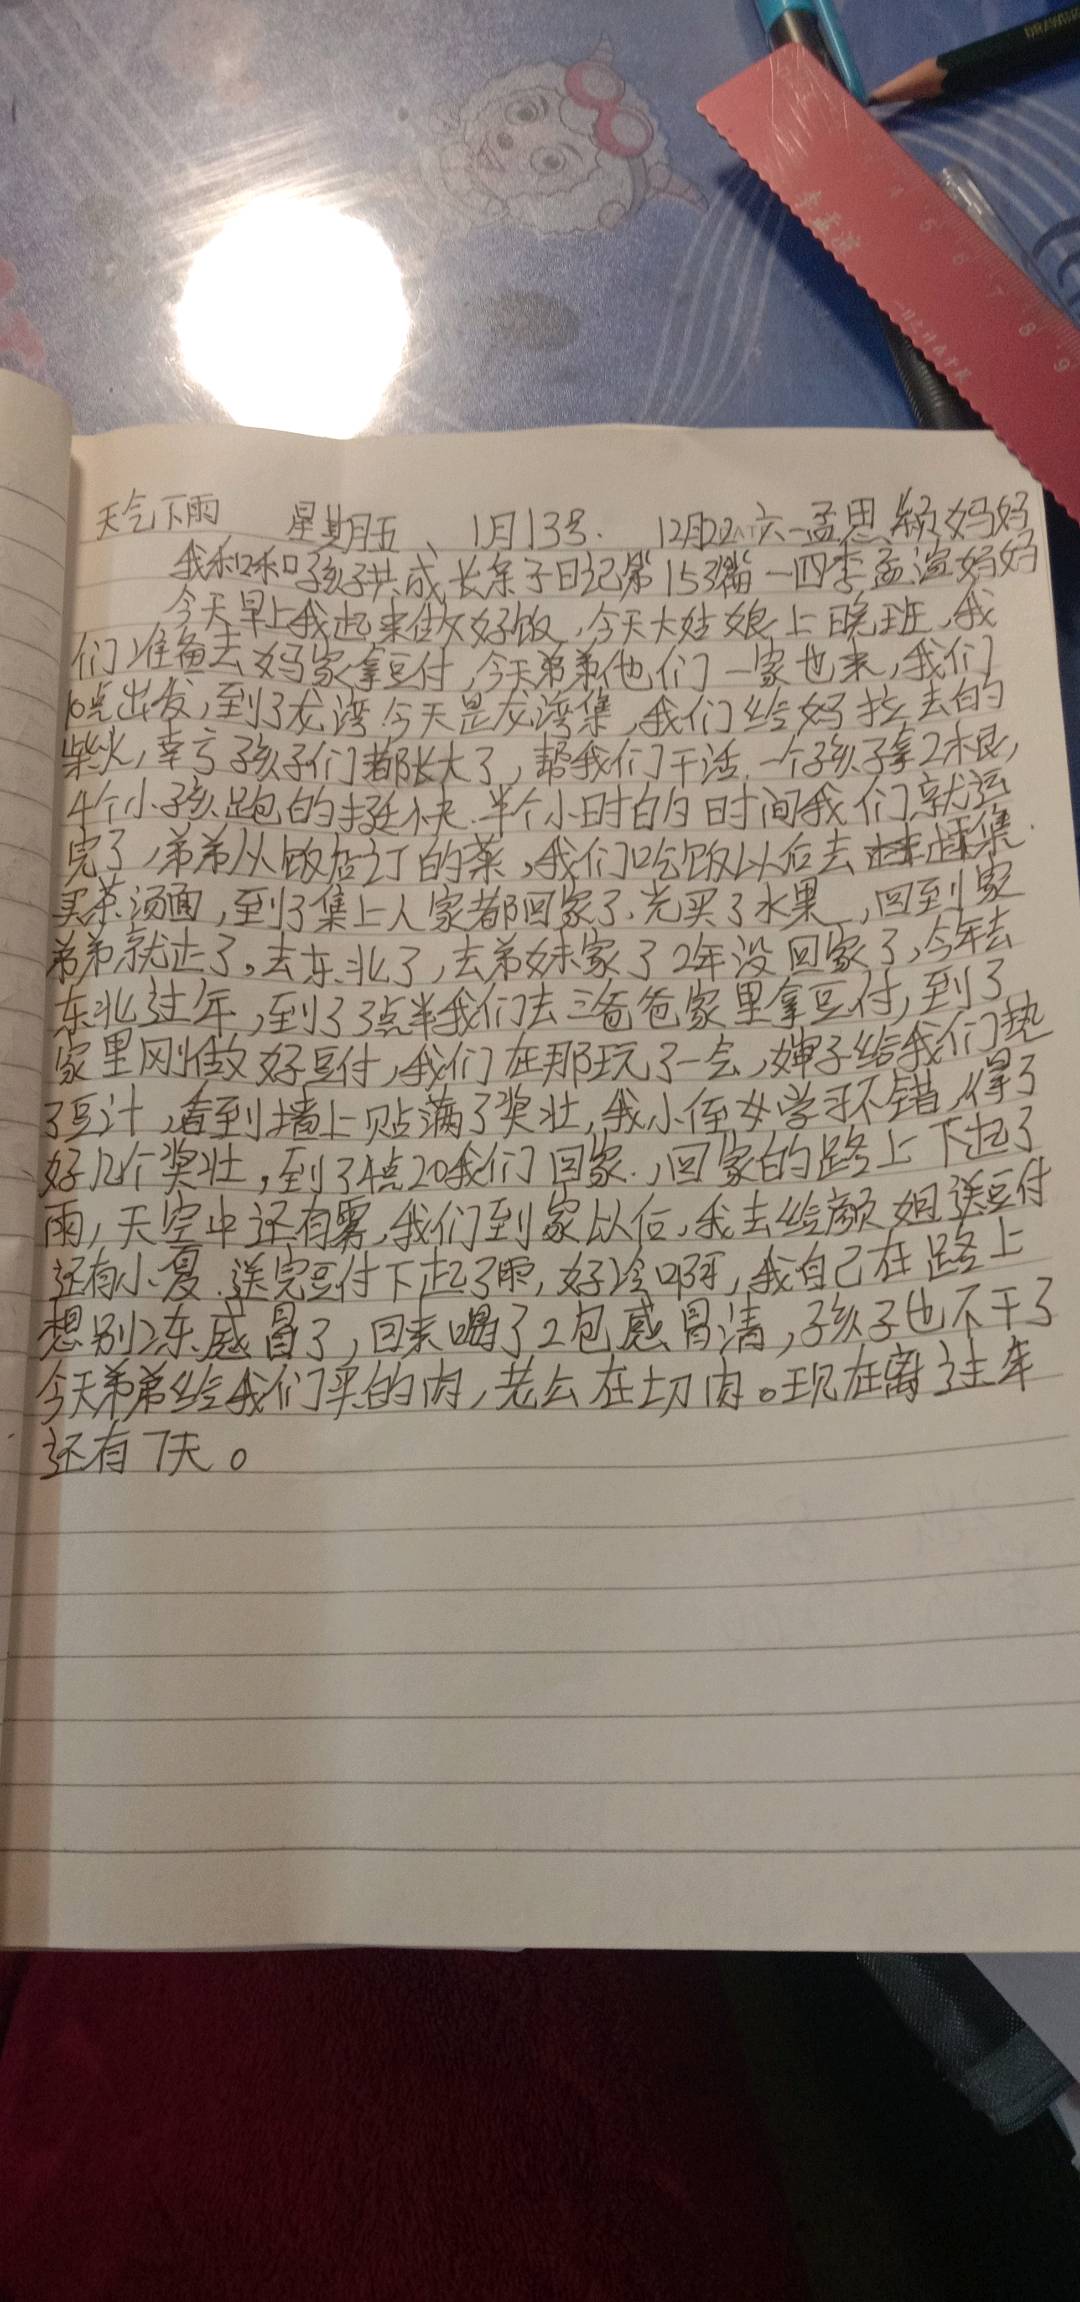 DRAWING
4 5 6 7 8 9
天气下雨 星期五、1月13号. 12月22 六一孟思颖妈妈
我和孩子共成长亲子日记第153篇一四李孟谊妈妈
今天早上我起来做好饭,今天大姑娘上晚班,我
们准备去妈家拿豆付,今天弟弟他们一家也来,我们
10点出发,到了龙湾今天是龙湾集,我们给妈拉去的
柴火,幸亏孩子们都长大了,帮我们干活.一个孩子拿2根,
4个小孩跑的挺快.半个小时的时间我们就运
完了,弟弟从饭店订的菜,我们吃饭以后去赶集.
买茶汤面,到了集上人家都回家了、光买了水果,回到家
弟弟就走了。去东北了,去弟妹家了2年没回家了,今年去
东北过年,到了3点半我们去三爸爸家里拿豆付,到了
家里刚做好豆付,我们在那玩了一会,婶子给我们热
了豆汁,看到墙上贴满了奖壮,我小侄女学习不错,得了
好几个奖壮,到了4点20我们回家.,回家的路上下起了
雨,天空中还有雾,我们到家以后,我去给颜姐送豆付
还有小夏.送完豆付下起了雨,好冷啊,我自己在路上
想别冻感冒了,回来喝了2包感冒清,孩子也不干了
今天弟弟给我们买的肉,老公在切肉。现在离过年
还有7天。